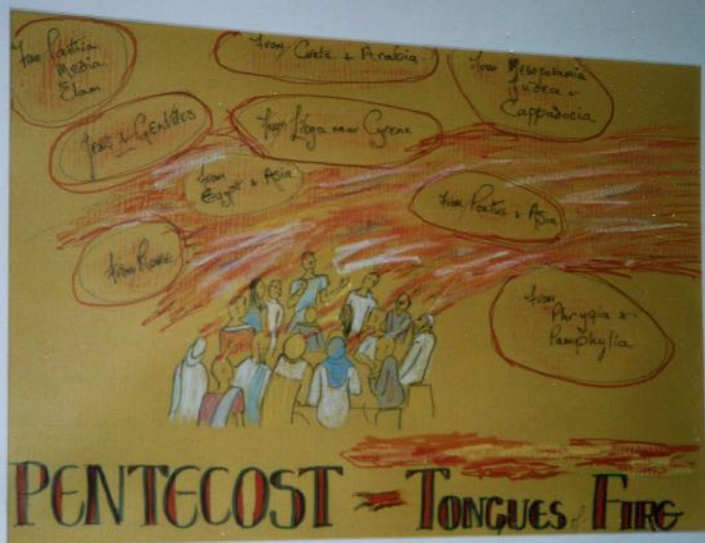 from Parthia
Media
Elam
from Crete & Arabia
from Mesopotamia
Judea &
Cappadocia
Jews & Gentiles
from Libya near Cyrene
from
Egypt & Asia
from Pontus & Asia
from Rome
from
Phrygia &
Pamphylia
PENTECOST - TONGUES of FIRE